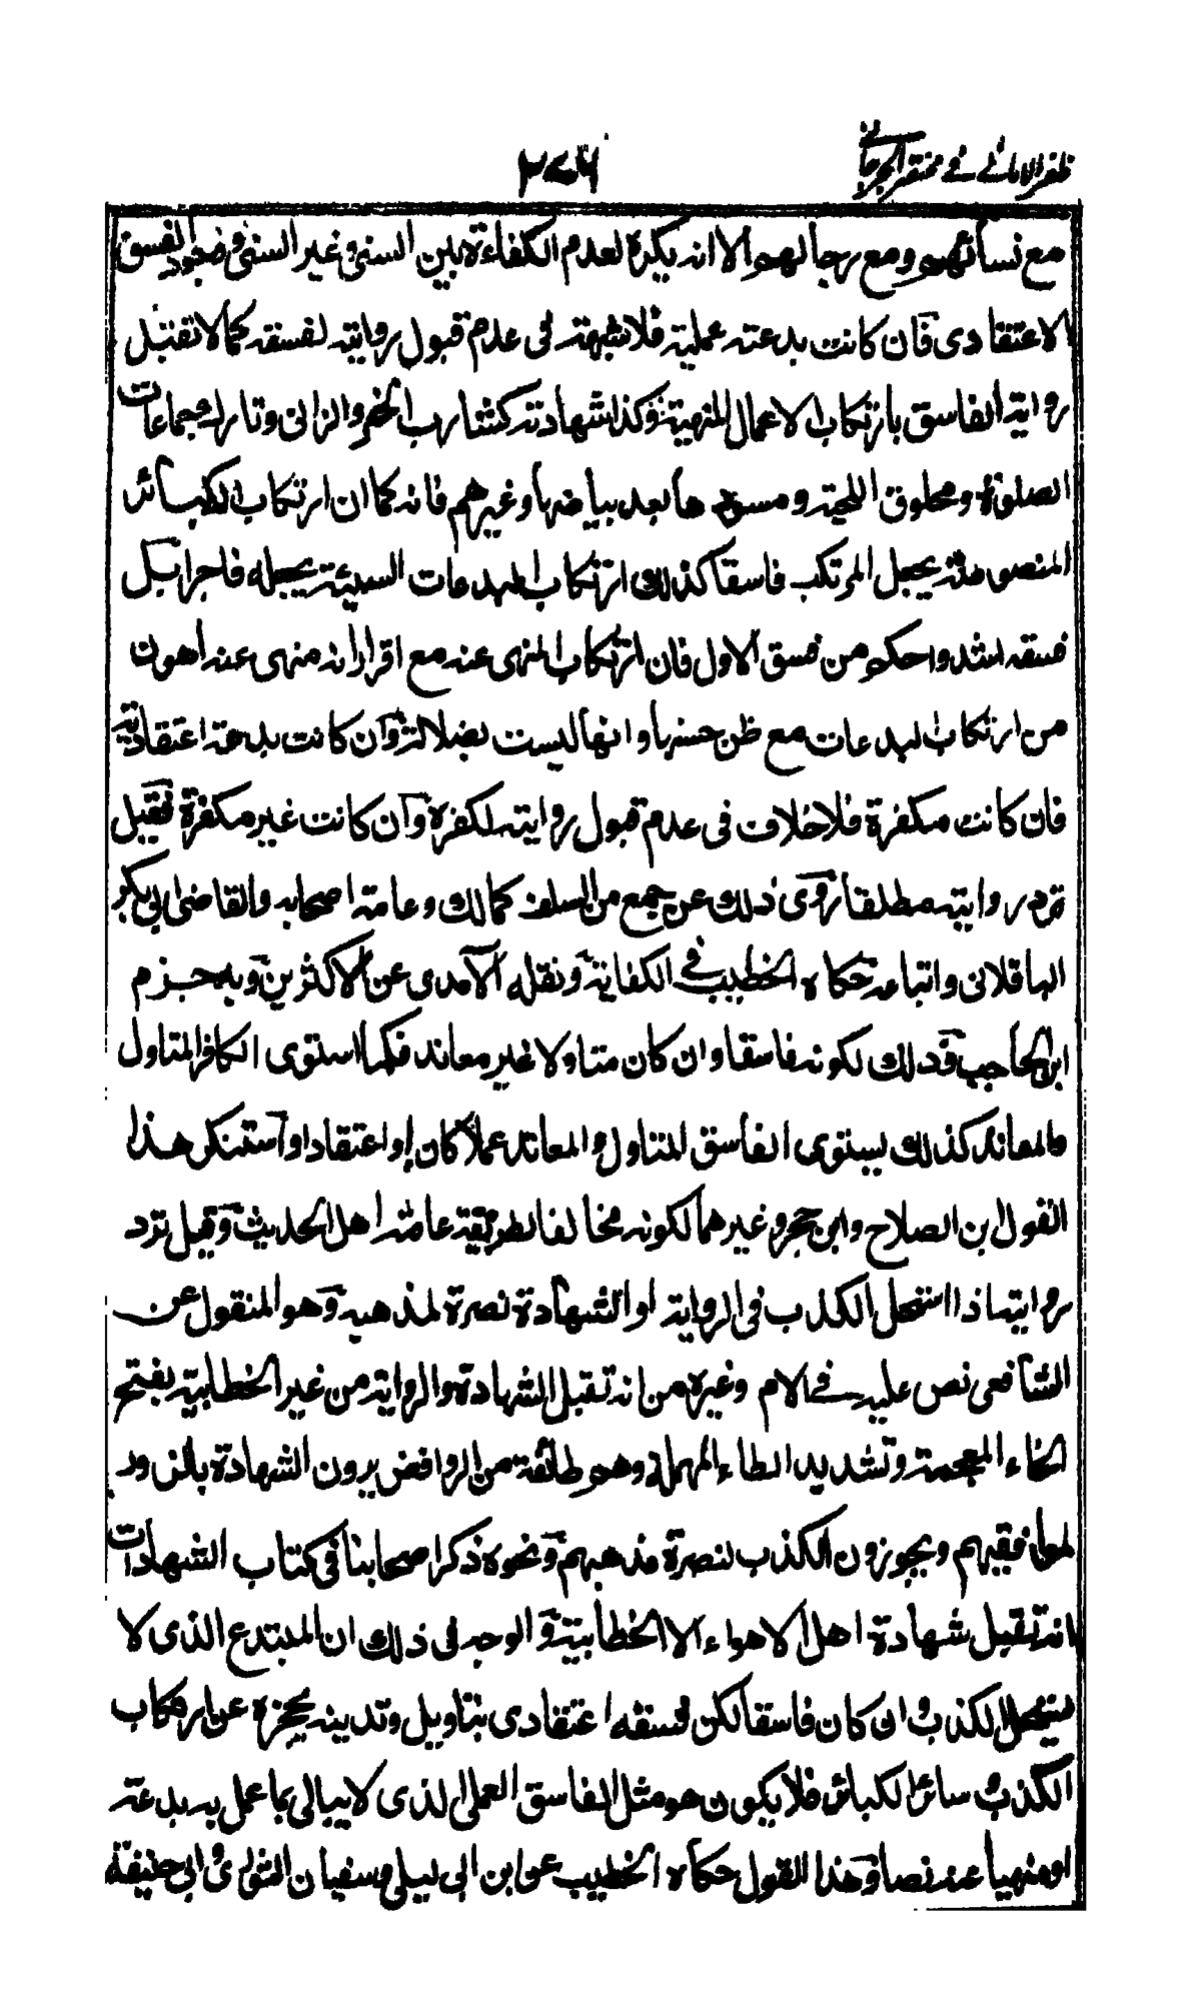 ظفر الامانی فی مختصر الجرجانی
۲۷۶
مع نسائهم ومع رجالهم الا انه یکره لعدم الکفاءة بین السنی وغیر السنی ووجود الفسق
الاعتقادی فان کانت بدعته عملیة فلا شبهة فی عدم قبول روایته لفسقه کما لا تقبل
روایة الفاسق بارتکاب الاعمال المنهیة وکذا شهادته کشارب الخمر والزانی وتارک جماعات
الصلوة ومحلوق اللحیة و ها بعد بیاضها وغیرهم فانه کما ان ارتکاب الکبائر
المنصوصة یجعل المرتکب فاسقا کذلک ارتکاب البدعات السیئة یجعله فاجرا بل
فسقه اشد واحکم من فسق الاول فان ارتکاب المنهی عنه مع اقرار انه منهی عنه اهون
من ارتکاب البدعات مع ظن حسنها وانها لیست بضلالة وان کانت بدعته اعتقادیة
فان کانت مکفرة فلا خلاف فی عدم قبول روایته لکفره وان کانت غیر مکفرة فقیل
ترد روایته مطلقا روی ذلک عن جمع من السلف کمالک وعامة اصحابه والقاضی ابی بکر
الباقلانی واتباعه حکاه الخطیب فی الکفایة ونقله الآمدی عن الاکثرین وبه جزم
ابن الحاجب وذلک لکونه فاسقا وان کان متاولا غیر معاند فکما استوی الکافر المتاول
والمعاند کذلک یستوی الفاسق المتاول والمعاند عملا کان او اعتقادا واستنکر هذا
القول ابن الصلاح وابن حجر وغیرهما لکونه مخالفا لطریقة عامة اهل الحدیث وقیل ترد
روایته اذا استحل الکذب فی الروایة او الشهادة نصرة لمذهبه وهو المنقول عن
الشافعی نص علیه فی الام وغیره من انه تقبل الشهادة والروایة من غیر الخطابیة بفتح
الخاء المعجمة وتشدید الطاء المهملة وهم طائفة من الروافض یرون الشهادة بالزور
لموافقیهم ویجوزون الکذب لنصرة مذهبهم ونحوه ذکر اصحابنا فی کتاب الشهادات
انه تقبل شهادة اهل الاهواء الا الخطابیة والوجه فی ذلک ان المبتدع الذی لا
یستحل الکذب وان کان فاسقا لکن فسقه اعتقادی بتاویل وتدینه یحجزه عن ارتکاب
الکذب وسائر الکبائر فلا یکون هو مثل الفاسق العملی الذی لا یبالی بما عمل به بدعة
او منهیا عنه نصا وهذا القول حکاه الخطیب عن ابن ابی لیلی وسفیان الثوری وابی حنیفة